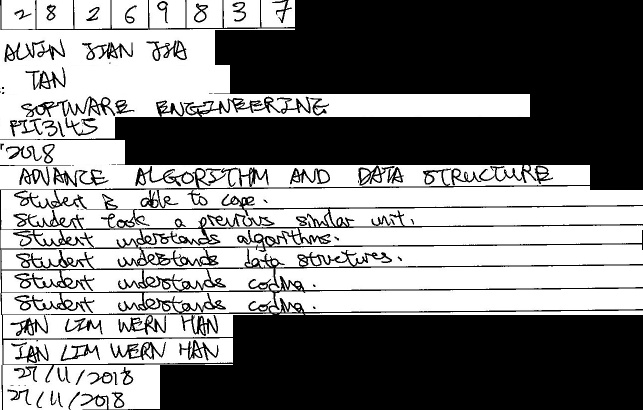 2 8 2 6 9 8 3 7
ALVIN JIAN JIA
TAN
:
SOFTWARE ENGINEERING
FIT3145
2018
ADVANCE ALGORITHM AND DATA STRUCTURE
Student is able to cope.
Student took a previous similar unit.
Student understands algorithms.
Student understands data structures.
Student understands coding.
Student understands coding.
IAN LIM WERN HAN
IAN LIM WERN HAN
27/11/2018
27/11/2018